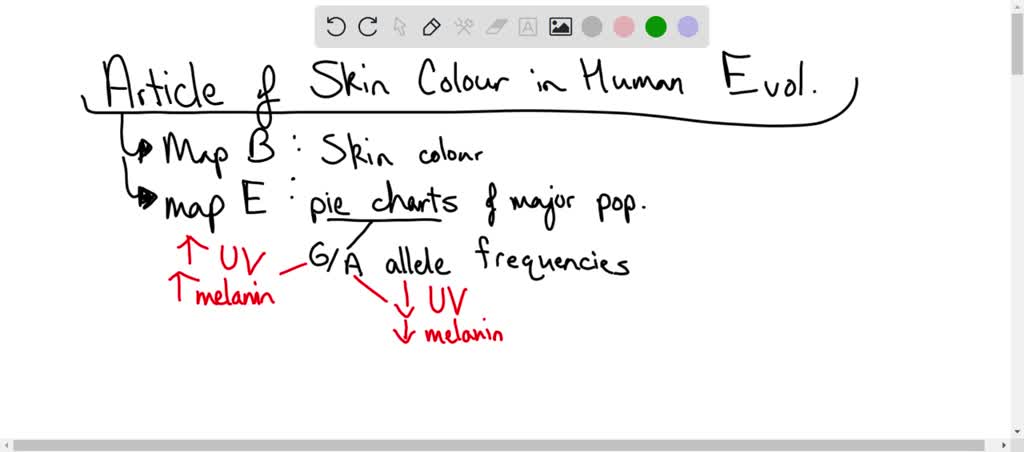 Article of Skin Colour in Human Evol.
Map B : Skin colour
map E : pie charts of major pop.
G/A allele frequencies
↑ UV
↑ melanin
↓ UV
↓ melanin